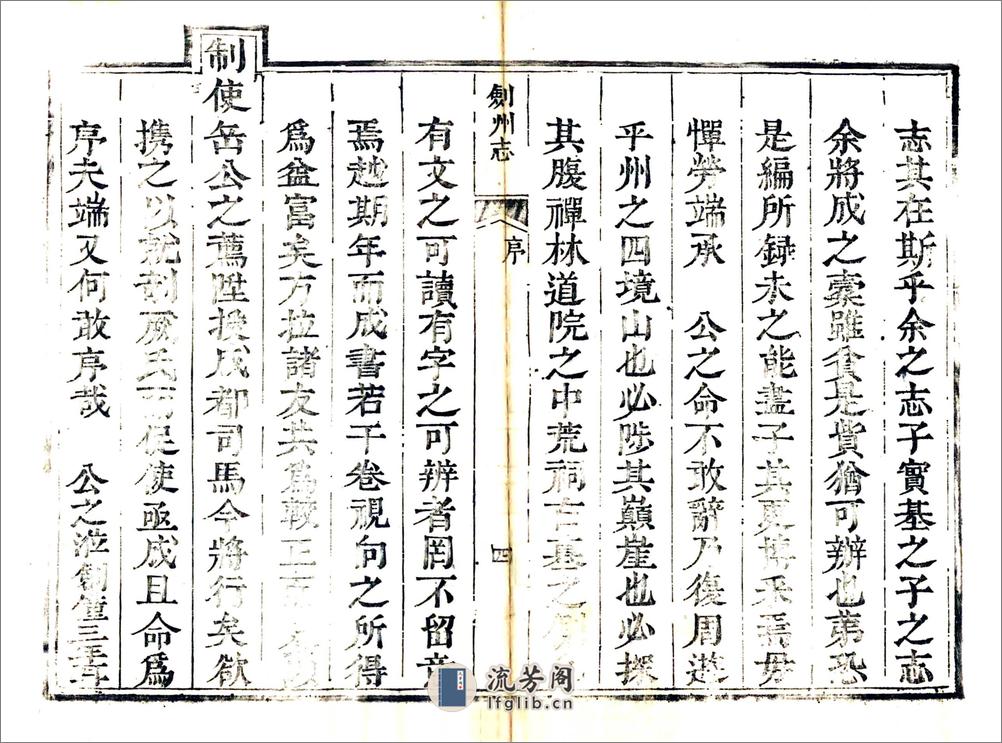 志其在斯乎余之志子實基之子之志
余將成之橐雖貧是費猶可辦也第恐
是編所録未之能盡子其更博采焉毋
憚勞端承 公之命不敢辭乃復周遊
乎州之四境山也必陟其巔崖也必探
其腹禪林道院之中荒祠古墓之
劍州志 序 四
有文之可讀有字之可辨者罔不留意
焉越期年而成書若干卷視向之所得
爲益富矣方拉諸友共爲較正而
制使岳公之薦陞授成都司馬今將行矣欲
携之以就剞厥氏而促使亟成且命爲
序夫端又何敢序哉 公之涖劍僅三年
流芳阁
lfglib.cn